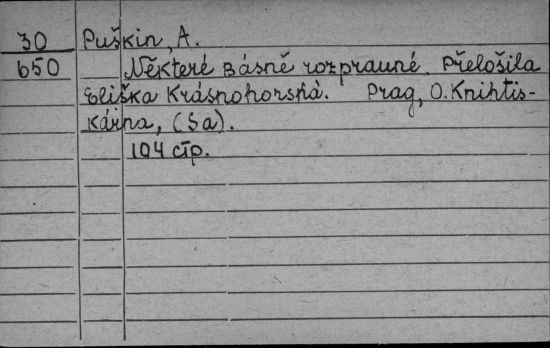 30 Puškin, A.
650 Některé Básně rozpravné. Přeložila
Eliška Krásnohorská. Prag, O. Knihtis-
kárna, (Sa).
104 стр.